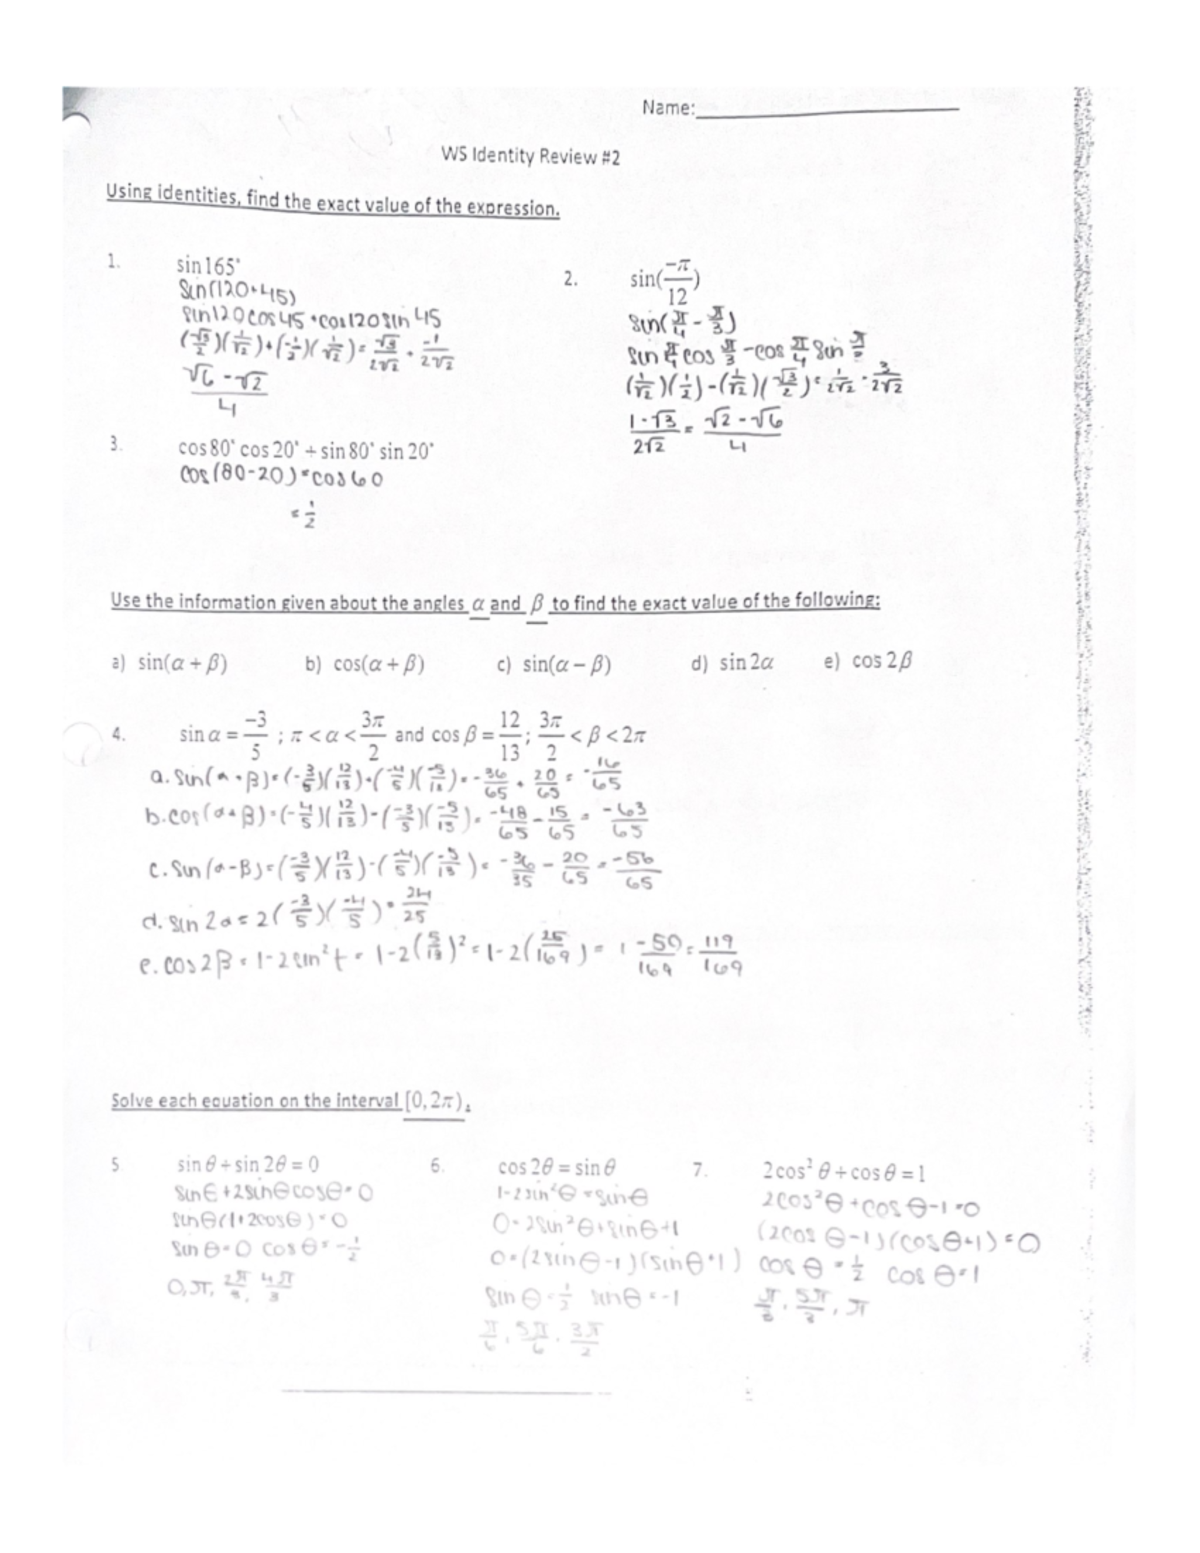 Name:
WS Identity Review #2
Using identities, find the exact value of the expression.
1. sin165°
sin(120+45)
sin120cos45+cos120sin45
(√3/2)(1/√2)+(-1/2)(1/√2)=√3/2√2 + -1/2√2
√6-√2/4
2. sin(-π/12)
sin(π/4-π/3)
sin π/4 cos π/3 -cos π/4 sin π/3
(1/√2)(1/2)-(1/√2)(√3/2)=1/2√2 - 3/2√2
1-√3/2√2 = √2-√6/4
3. cos80°cos20°+sin80°sin20°
cos(80-20)=cos60
=1/2
Use the information given about the angles α and β to find the exact value of the following:
a) sin(α+β) b) cos(α+β) c) sin(α−β) d) sin2α e) cos2β
4. sinα=-3/5 ; π<α<3π/2 and cosβ=12/13; 3π/2<β<2π
a. sin(α+β)=(-3/5)(12/13)+(-4/5)(-5/13)=-36/65+20/65=-16/65
b. cos(α+β)=(-4/5)(12/13)-(-3/5)(-5/13)=-48/65-15/65=-63/65
c. sin(α-β)=(-3/5)(12/13)-(-4/5)(-5/13)=-36/35-20/65=-56/65
d. sin2α=2(-3/5)(-4/5)=24/25
e. cos2β=1-2sin²t=1-2(5/13)²=1-2(25/169)=1-50/169=119/169
Solve each equation on the interval [0,2π).
5 sinθ+sin2θ=0
sinθ+2sinθcosθ=0
sinθ(1+2cosθ)=0
sinθ=0 cosθ=-1/2
0,π, 2π/3, 4π/3
6. cos2θ=sinθ
1-2sin²θ=sinθ
0=2sin²θ+sinθ+1
0=(2sinθ-1)(sinθ+1)
sinθ=1/2 sinθ=-1
π/6, 5π/6, 3π/2
7. 2cos²θ+cosθ=1
2cos²θ+cosθ-1=0
(2cosθ-1)(cosθ+1)=0
cosθ=1/2 cosθ=1
π/3, 5π/3, π